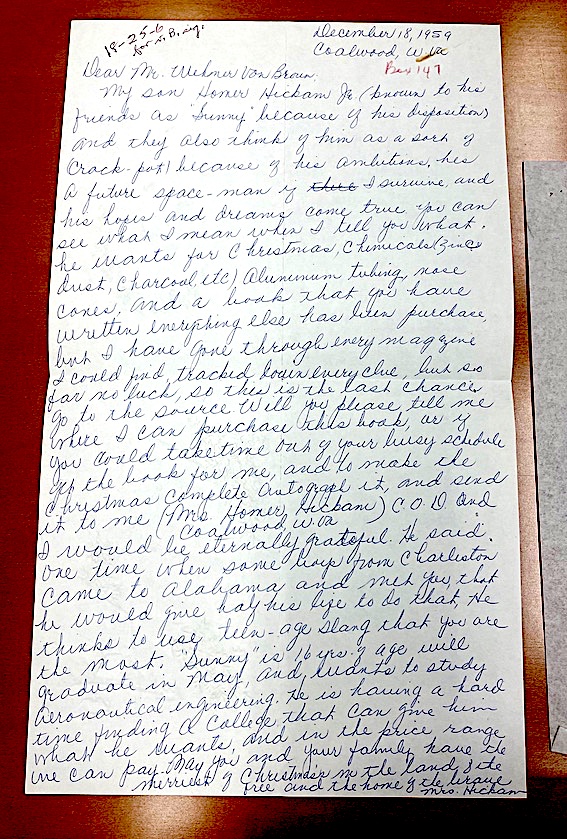 18-25-6
for N. B. sig.
December 18, 1959
Coalwood, W. Va
Box 147
Dear Mr. Wehner Von Braun:
My son Homer Hickam Jr. (known to his
friends as "Sunny" because of his disposition)
and they also think of him as a sort of
Crack-pot) because of his ambitions, he's
a future space-man if I survive, and
his hopes and dreams come true you can
see what I mean when I tell you what.
he wants for Christmas, Chemicals (zinc
dust, Charcoal, etc) Aluminum tubing, nose
cones, and a book that you have
written everything else has been purchase,
but I have gone through every magazine
I could find, tracked down every clue, but so
far no luck, so this is the last chance,
go to the source. Will you please tell me
where I can purchase this book, or if
you could take time out of your busy schedule
get the book for me, and to make the
Christmas complete autograph it, and send
it to me (Mrs. Homer Hickam) C.O.D. and
Coalwood, W. Va
I would be eternally grateful. He said.
one time when some boys from Charleston
came to Alabama and met you, that
he would give half his life to do that, He
thinks to use teen-age slang that you are
the most. "Sunny" is 16 yrs. of age will
graduate in May, and wants to study
Aeronautical engineering. He is having a hard
time finding a College that can give him
what he wants, and in the price range
we can pay. May you and your family have the
merriest of Christmas's in the land of the
free and the home of the brave
Mrs. Hickam